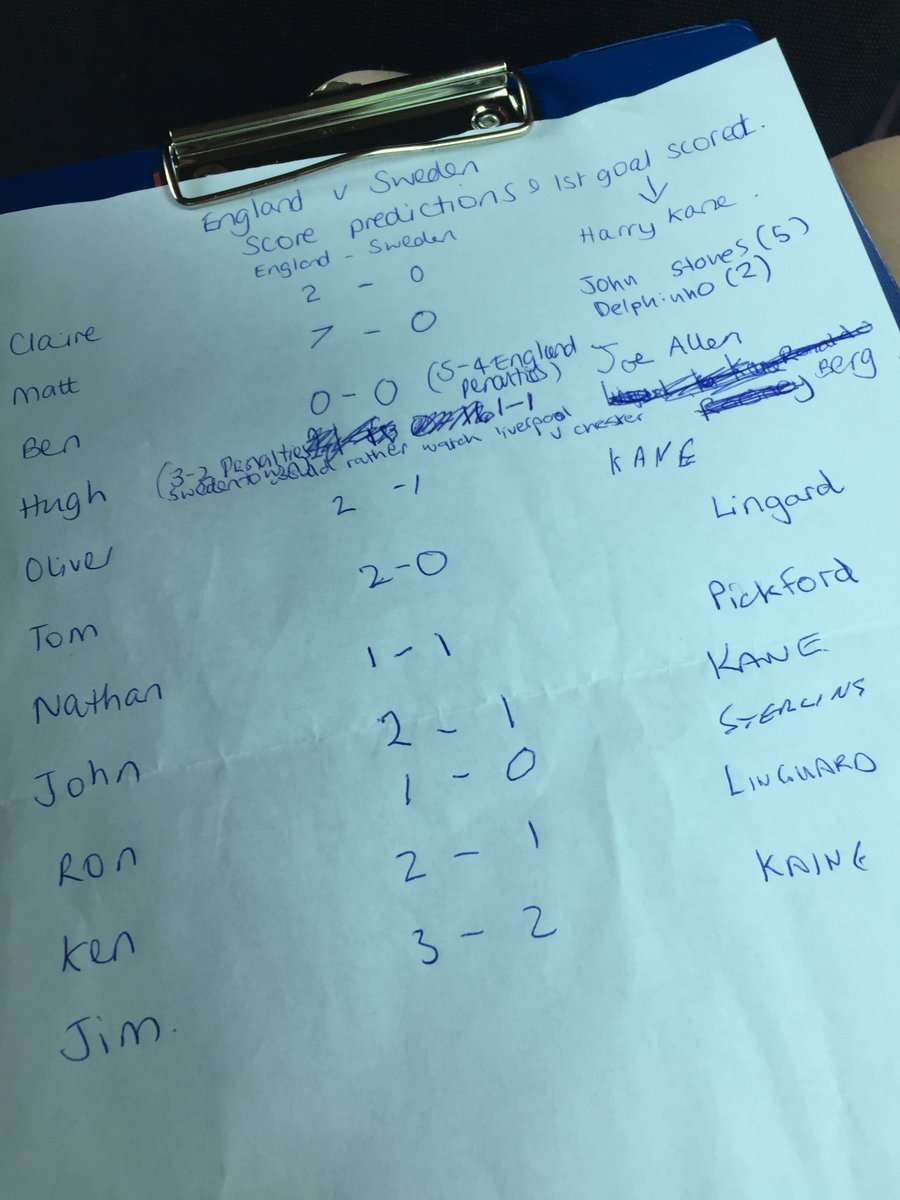 England v Sweden
Score predictions & 1st goal scored.
England - Sweden
Claire 2 - 0 Harry Kane.
Matt 7 - 0 John Stones (5)
Delphinho (2)
Ben 0 - 0 (5-4 England penalties) Joe Allen
Hugh 1-1 Berg
(3-2 Penalties
Sweden to would rather watch liverpool v chester
Oliver 2 - 1 KANE
Tom 2 - 0 Lingard
Nathan 1 - 1 Pickford
John 2 - 1 KANE
Ron 1 - 0 STERLING
Ken 2 - 1 LINGUARD
Jim. 3 - 2 KAINE